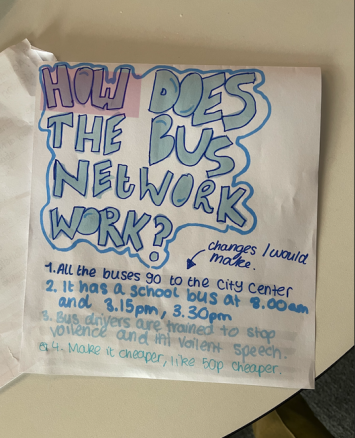 HOW DOES
THE BUS
NETWORK
WORK?
changes I would
make.
1. All the buses go to the city center
2. It has a school bus at 8.00am
and 3.15pm, 3.30pm
3. Bus drivers are trained to stop
voilence and voilent speech.
4. Make it cheaper, like 50p cheaper.